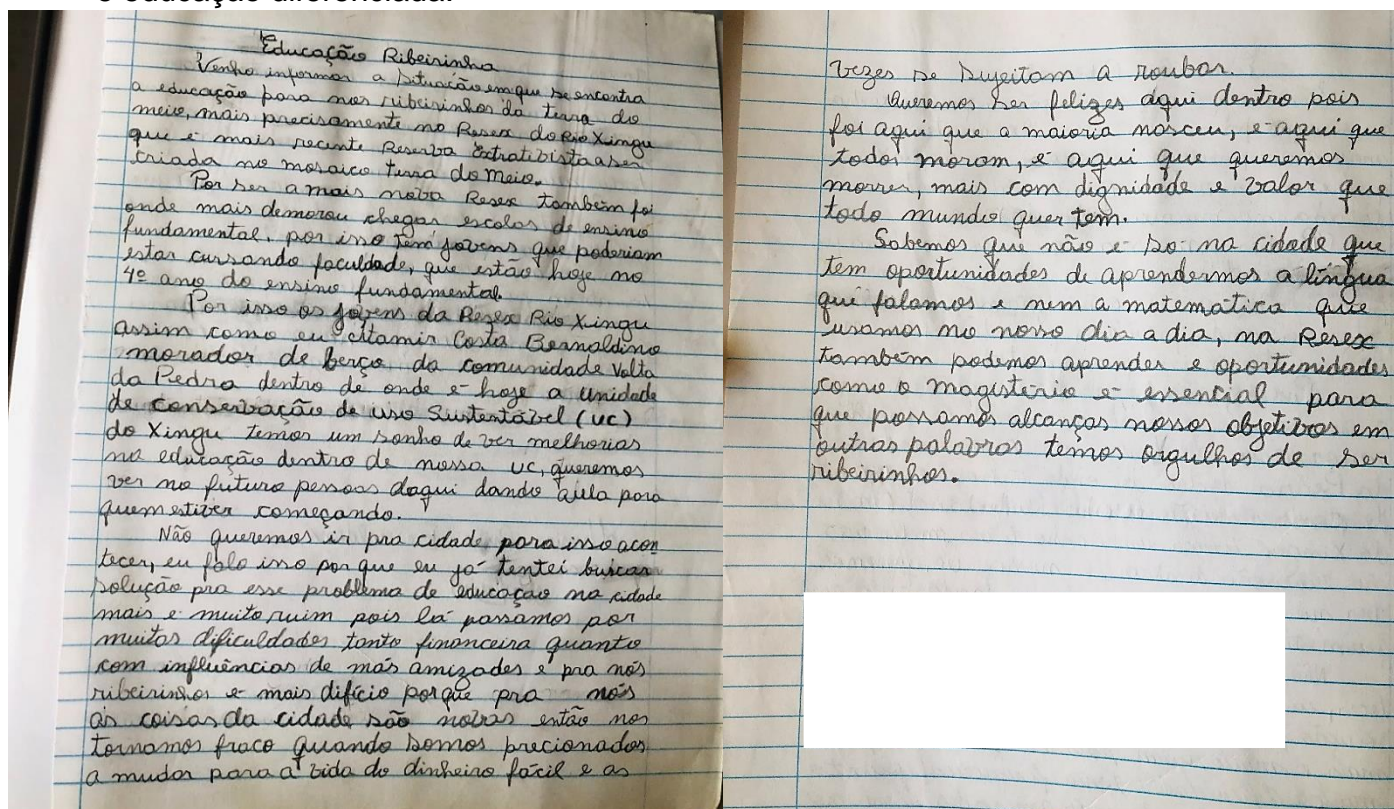 e educação diferenciada.
Educação Ribeirinha
Venho informar a situação em que se encontra
a educação para nos ribeirinhos da terra do
meio, mais precisamente no Resex do Rio Xingu
que é mais recente Reserva Extrativista a ser
criada no mosaico terra do meio.
Por ser a mais nova Resex também foi
onde mais demorou chegar escolas de ensino
fundamental, por isso tem jovens que poderiam
estar cursando faculdade, que estão hoje no
4º ano do ensino fundamental.
Por isso os jovens da Resex Rio Xingu
assim como eu eltamir Costa Bernaldino
morador de berço da comunidade Volta
da Pedra dentro de onde é hoje a unidade
de conservação de uso Sustentável (uc)
do Xingu temos um sonho de ver melhorias
na educação dentro de nossa uc, queremos
ver no futuro pessoas daqui dando aula para
quem estiver começando.
Não queremos ir pra cidade para isso acon
tecer, eu falo isso porque eu já tentei buscar
solução pra esse problema de educação na cidade
mais é muito ruim pois lá passamos por
muitas dificuldades tanto financeira quanto
com influências de más amizades e pra nós
ribeirinhos é mais difício porque pra nós
as coisas da cidade são novas então nos
tornamos fraco quando somos precionados
a mudar para a vida do dinheiro fácil e as
vezes se sujeitam a roubar.
Queremos ser felizes aqui dentro pois
foi aqui que a maioria nasceu, é aqui que
todos moram, é aqui que queremos
morrer, mais com dignidade e valor que
todo mundo quer tem.
Sabemos que não é só na cidade que
tem oportunidades de aprendermos a língua
qui falamos e nem a matemática que
usamos no nosso dia a dia, na Resex
também podemos aprender e oportunidades
como o magistério é essencial para
que possamos alcanças nossos objetivos em
outras palavras temos orgulhos de ser
ribeirinhos.